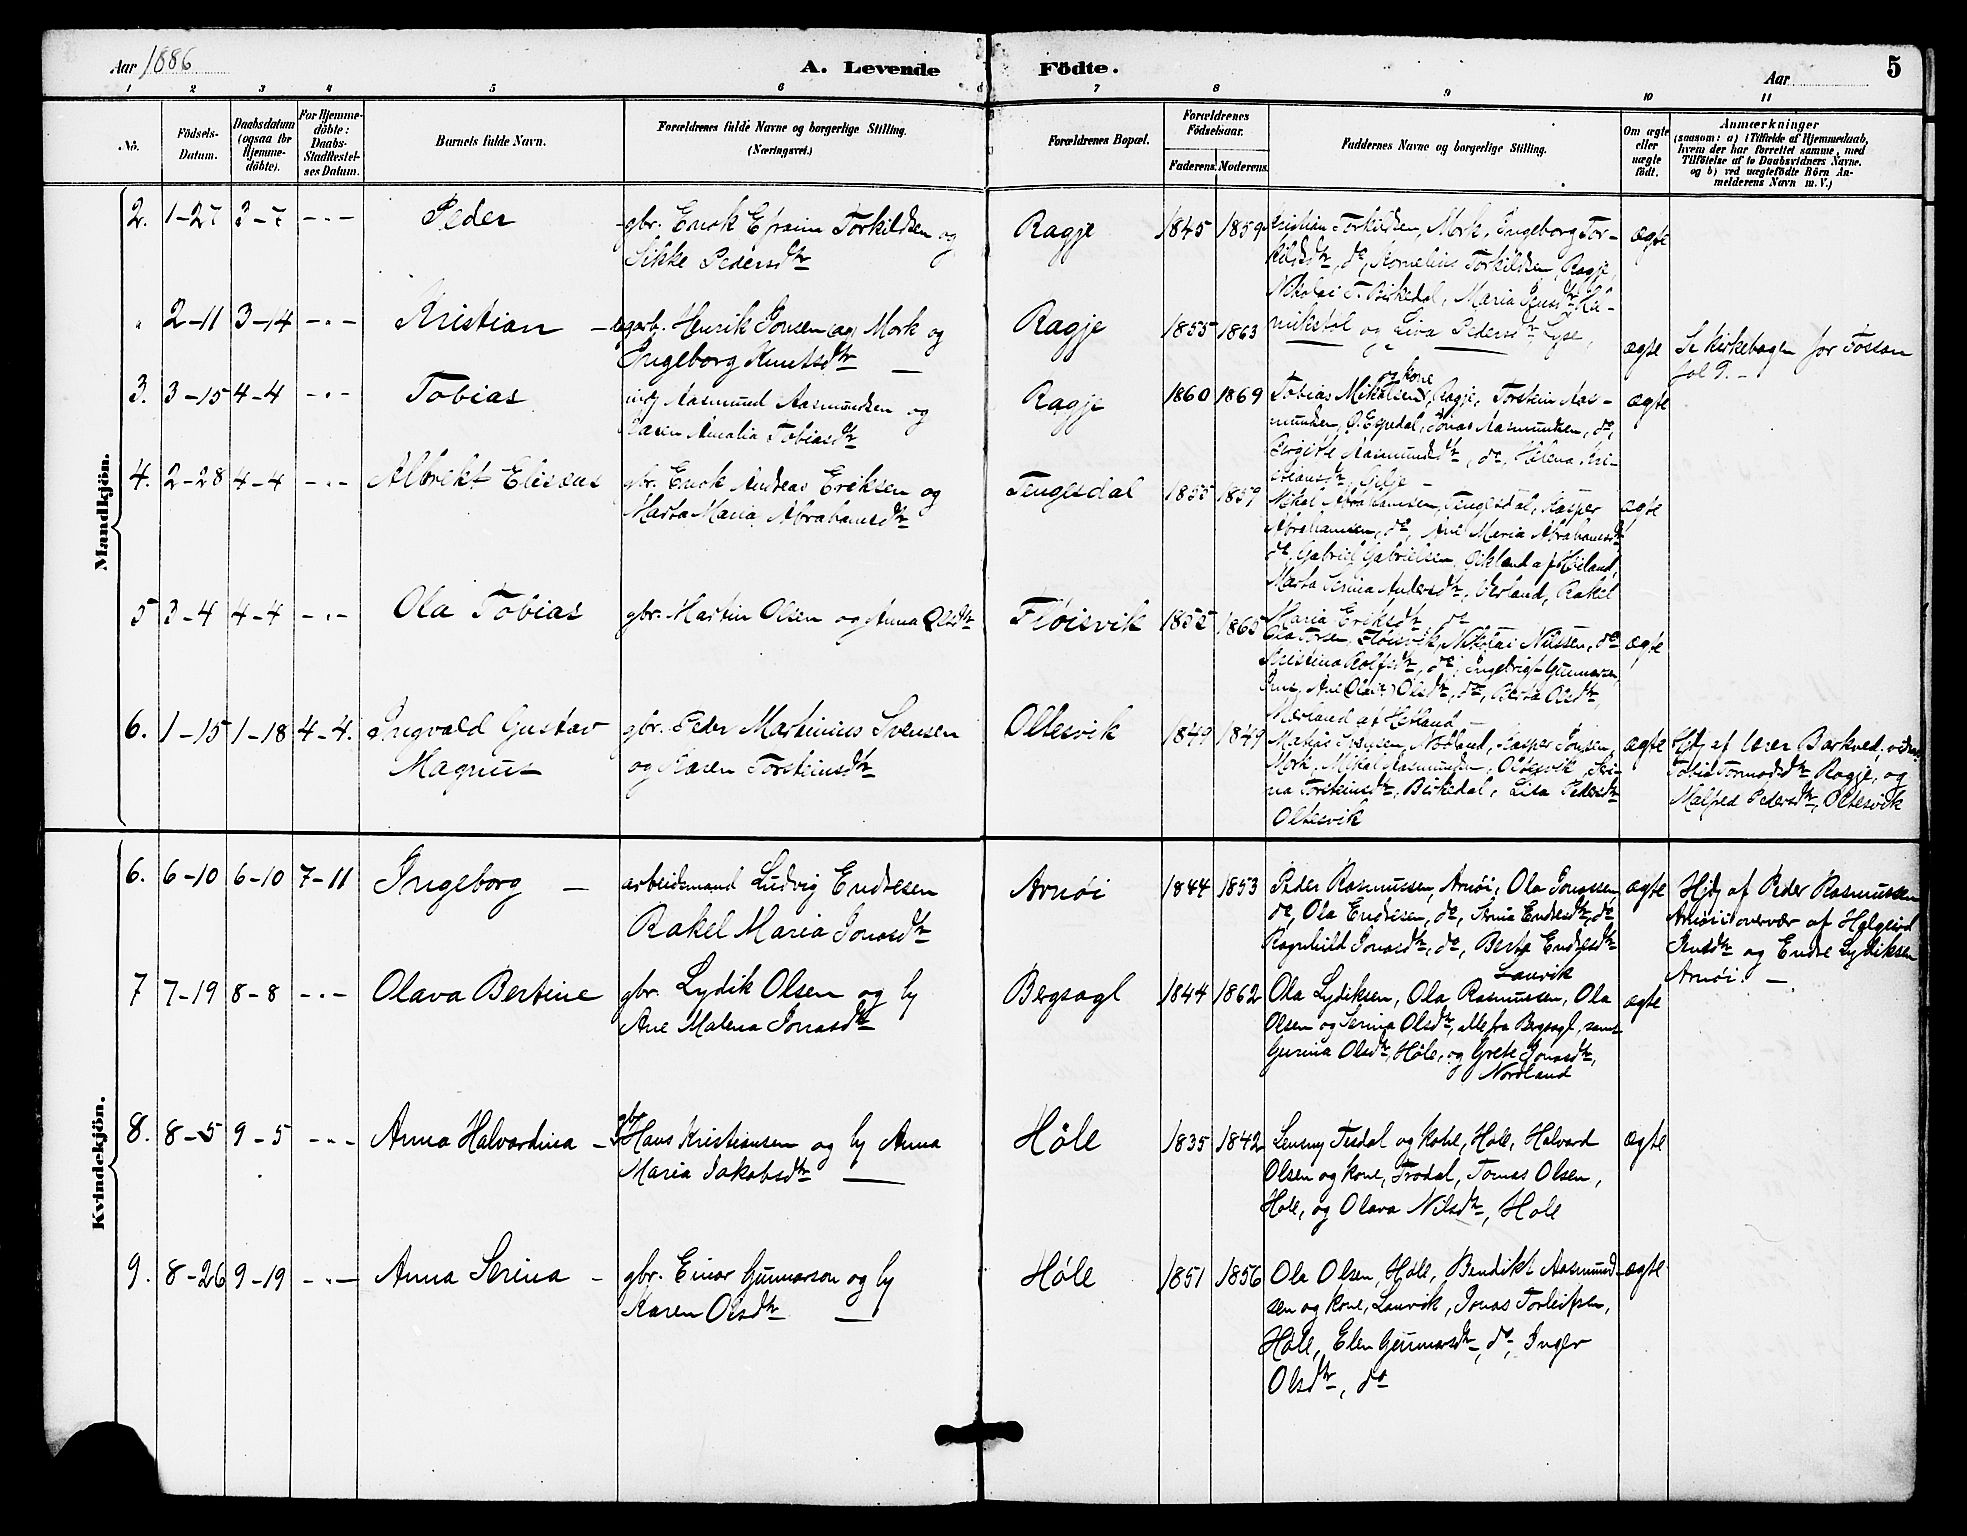 Aar 1886
A. Levende Födte.
Aar
5
1 2 3 4 5 6 7 8 9 10 11
Nö.
Födsels-
Datum.
Daabsdatum
(ogsaa for
Hjemme-
döbte).
For Hjemme-
döbte:
Daabs-
Stadfæstel-
ses Datum.
Barnets fulde Navn.
Forældrenes fulde Navne og borgerlige Stilling.
(Næringsvei.)
Forældrenes Bopæl.
Forældrenes
Födselsaar.
Faderens. Moderens.
Faddernes Navne og borgerlige Stilling.
Om ægte
eller
uægte
födt.
Anmærkninger
(saasom: a) i Tilfælde af Hjemmedaab,
hvem der har forrettet samme, med
Tilföielse af to Daabsvidners Navne.
og b) ved uægtefödte Börn An-
melderens Navn m. V.)
Mandkjön.
2. 1-27 - " - Peder
gbr. Enok Efraim Torkildsen og
Sikke Pedersdtr
Ragje 1845 1859
Kristian Torkildsen, Mork, Ingeborg Tor-
kildsdtr, do, Kornelius Torkildsen, Ragje,
Nikolai T. Birkedal, Maria
og Liva Pedersdtr Lyse,
ægte
" 2-11 3-14 - " - Kristian
Henrik Jonsen Mork og
Ingeborg Knutsdtr
Ragje 1855 1863
ægte
Se kirkebogen for Fossan
fol 9. -
3. 3-15 4-4 - " - Tobias
indj Aasmund Aasmundsen og
Karen Amalia Tobiasdtr
Ragje 1860 1869
og kone
Tobias Mikalsen, Ragje, Torstein Aas-
mundsen, Ø. Espedal, Jonas Aasmundsen, do,
Bergitte Aasmundsdtr, do, Helena Kri-
stiansdtr,
ægte
4. 2-28 4-4 - " - Albrekt Eliseus
gbr. Enok Andreas Eriksen og
Marta Maria Abrahamsdtr
Tengesdal 1855 1859
Mikal Abrahamsen, Tengesdal, Kasper
Abrahamsen, do, Ane Maria Abrahamsdtr
do, Gabriel Gabrielsen, af Hetland,
Marta Serina Andersdtr, Rakel
Maria Eriksdtr, do
ægte
5 3-4 4-4 - " - Ola Tobias
gbr. Martin Olsen og Anna Olsdtr
Fløisvik 1855 1865
Ola Torsen, Fløisvik, Nikolai Nilsen, do
Kristina Rolfsdtr, do, Ingebrigt Gunnarsen,
Ims, Ane Olsdtr, do, Berta Olsdtr,
Mærland af Hetland -
ægte
6. 1-15 1-18 4-4. Ingvald Gustav
Magnus
gbr. Peder Martinius Svensen
og Karen Torsteinsdtr
Oltesvik 1849 1849
Matias Svensen, Nødland, Kasper Jonsen,
Mork, Mikal Rasmussen, Oltesvik, Seri-
na Torsteinsdtr, Birkedal, Lisa Pedersdtr
Oltesvik
ægte
Hj af lærer Barkved, vidner
Tormodsdtr Ragje, og
Malfred Pedersdtr, Oltesvik
Kvindekjön.
6. 6-10 6-10 7-11 Ingeborg -
arbeidsmand Ludvig Endresen
Rakel Maria Jonasdtr
Arnøi 1844 1853
Peder Rasmussen, Arnøi, Ola Jonassen,
do, Ola Endresen, do, Anna Endresdtr, do
Ragnhild Jonasdtr, do, Berta Endresdtr
Lauvik
ægte
Hjdj af Peder Rasmussen
Arnøi i overvær af Helgeird
Jensdtr og Endre Lydiksen
Arnøi. -
7 7-19 8-8 - " - Olava Bertine
gbr. Lydik Olsen og hu
Ane Malena Jonasdtr
Bergsagl 1844 1862
Ola Lydiksen, Ola Rasmussen, Ola
Olsen og Serina Olsdtr, alle fra Bergsagl, samt
Gurina Olsdtr, Høle, og Grete Jonasdtr,
Nordland
ægte
8. 8-5 9-5 - " - Anna Halvardina -
gbr Hans Kristiansen og hu Anna
Maria Jakobsdtr
Høle 1835 1842
Lensm. Tesdal og kone, Høle, Halvard
Olsen og kone, Trodal, Tomas Olsen,
Høle, og Olava Nilsdtr, Høle
ægte
9. 8-26 9-19 - " - Anna Serina -
gbr. Einar Gunnarson og hu
Karen Olsdtr
Høle 1851 1856
Ola Olsen, Høle, Bendikt Aasmund-
sen og kone, Lauvik, Jonas Torleifsen,
Høle, Elen Gunnarsdtr, do, Inger
Olsdtr, do
ægte